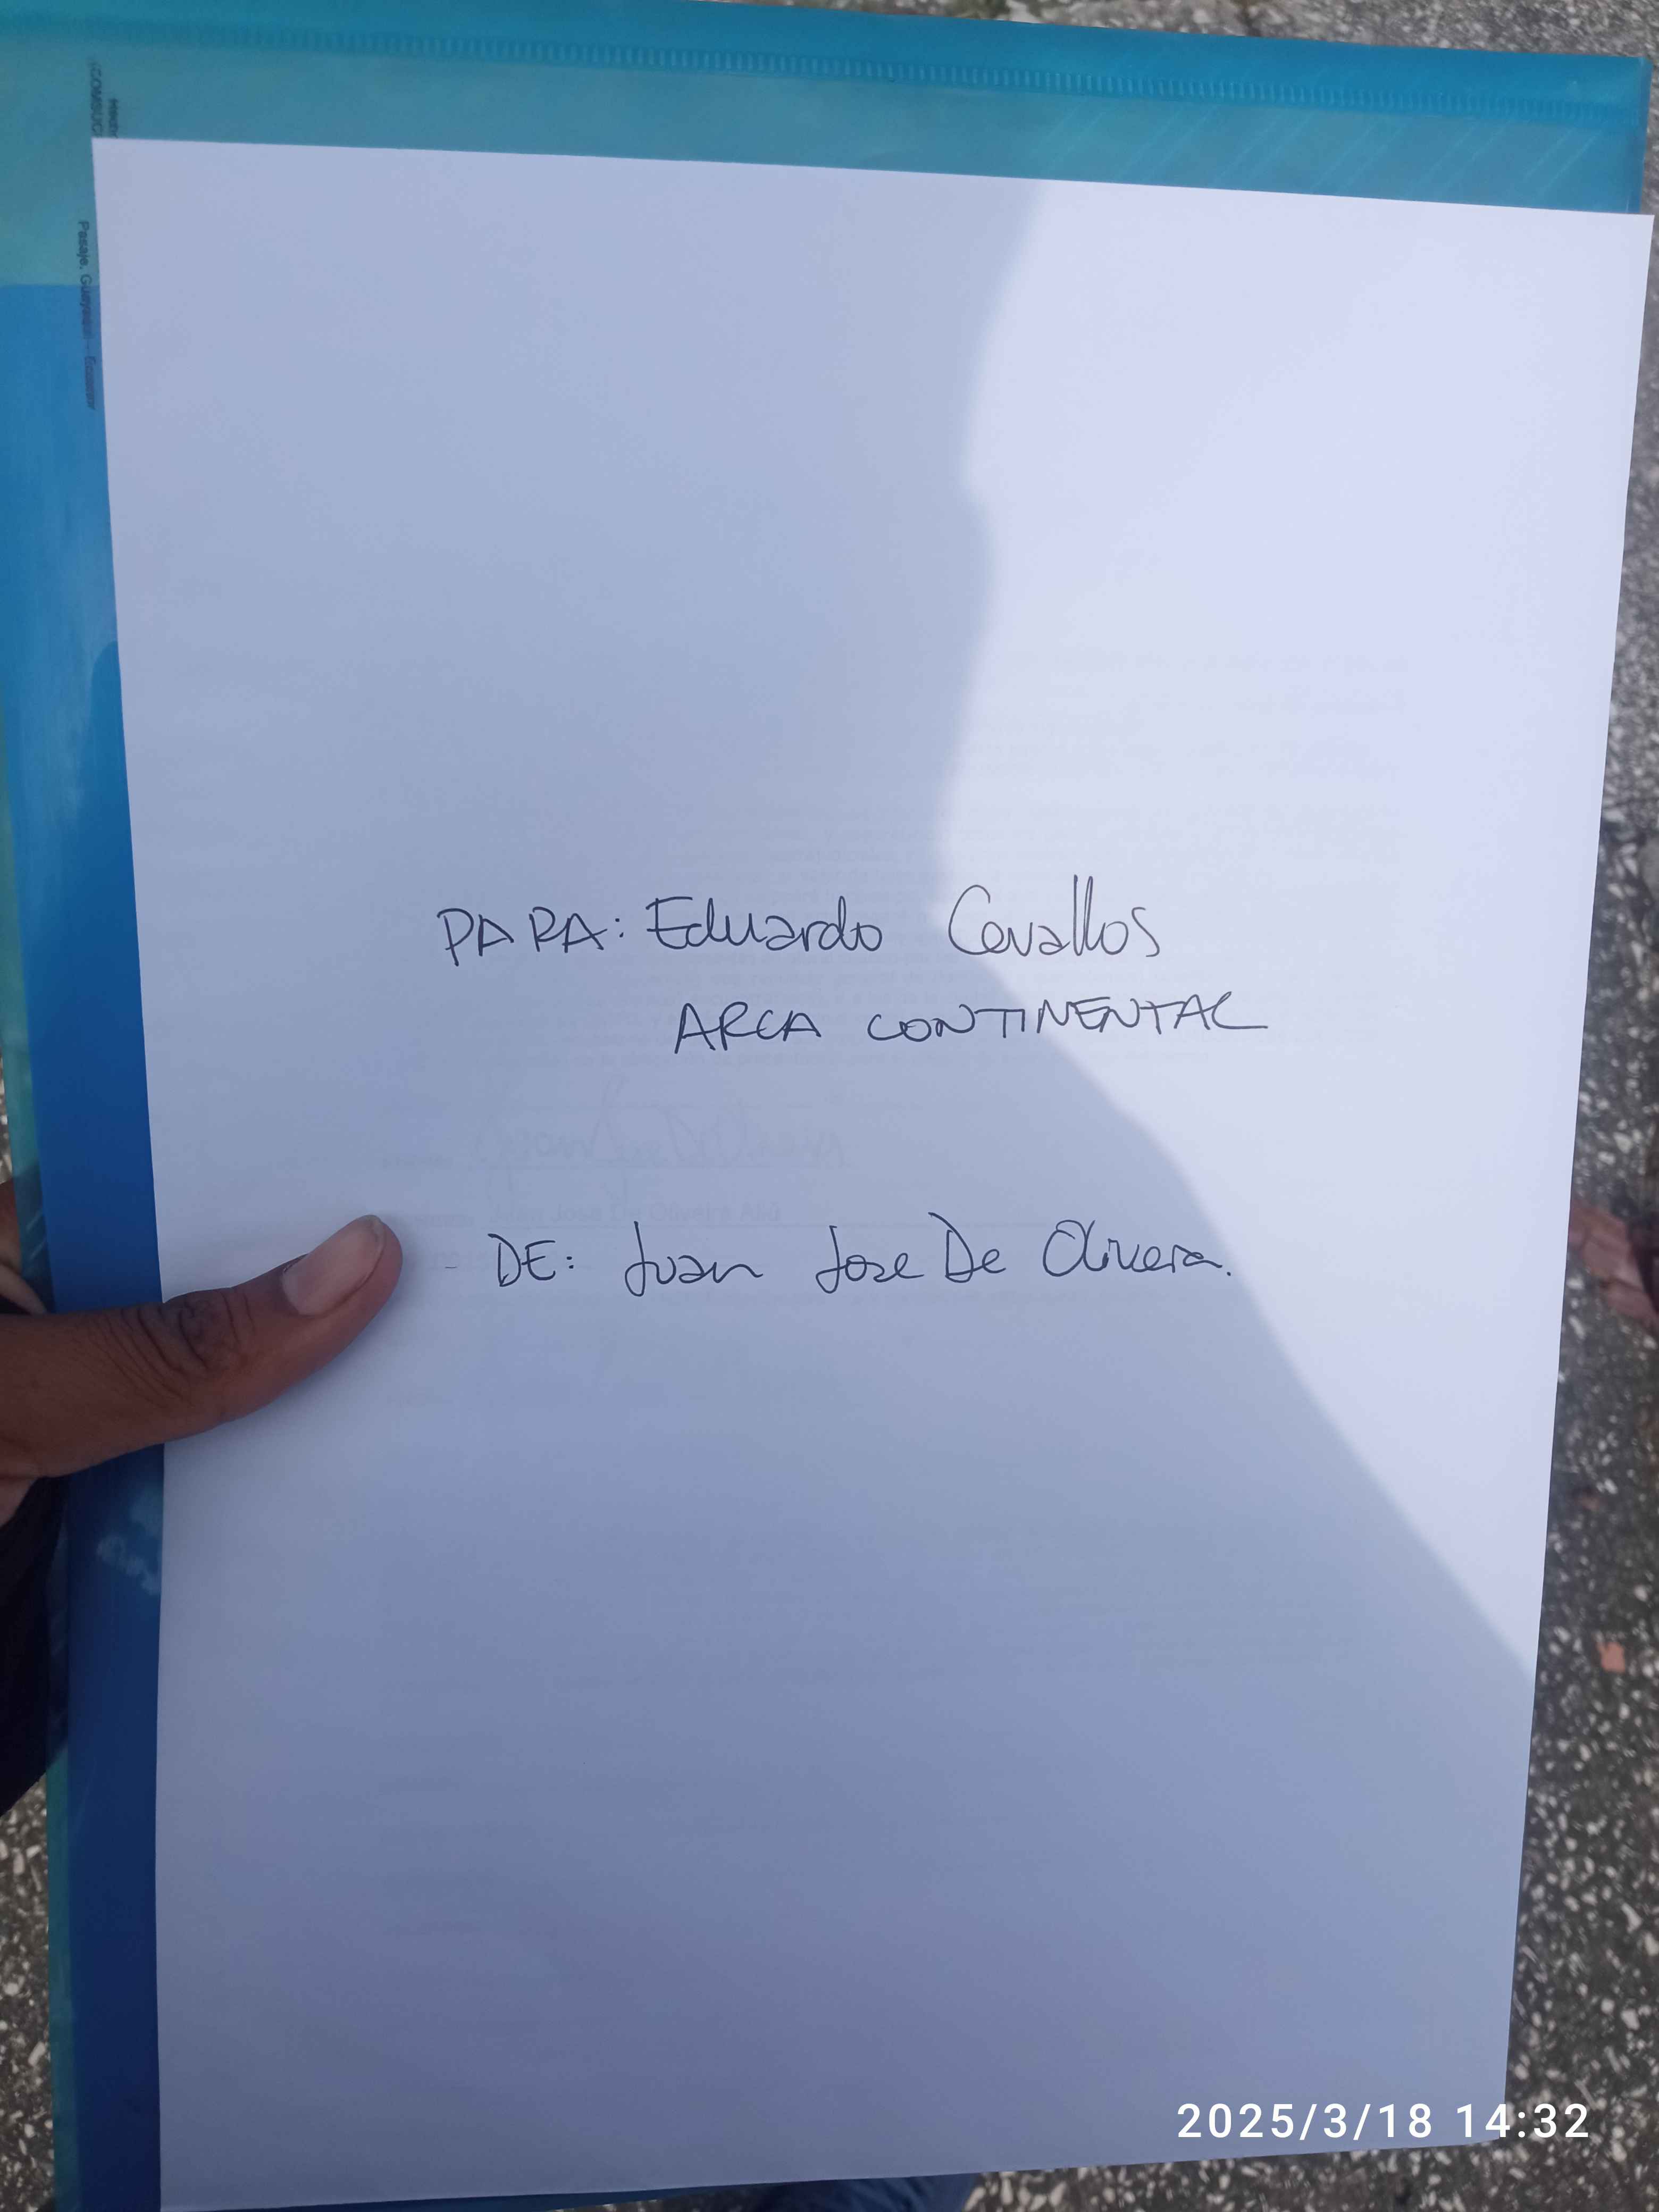 Pasaje, Guayaquil - Ecuador
PARA: Eduardo Cevallos
ARCA CONTINENTAL
Juan José De Oliveira
DE: Juan Jose De Olivera.
2025/3/18 14:32